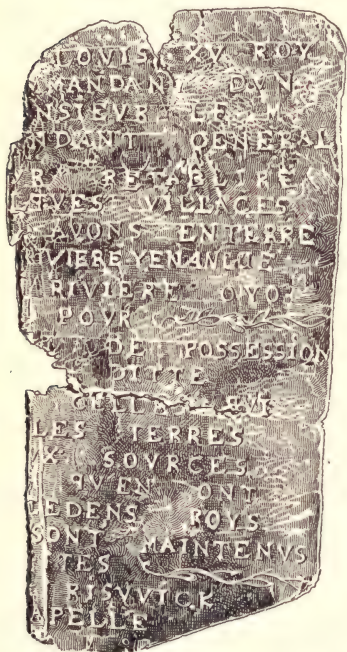 LOVIS XV ROY
MANDANT D'VN
NSIEVR LE M
NDANT GENERAL
RETABLIRE
QVES VILLAGES
AVONS ENTERRE
IVIERE YENANGUE
RIVIERE OYO
POVR
DE POSSESSION
DITTE
CELLE QVI
LES TERRES
VX SOVRCES
QVEN ONT
CEDENS ROYS
SONT MAINTENVS
TES
RISVVICK
APELLE